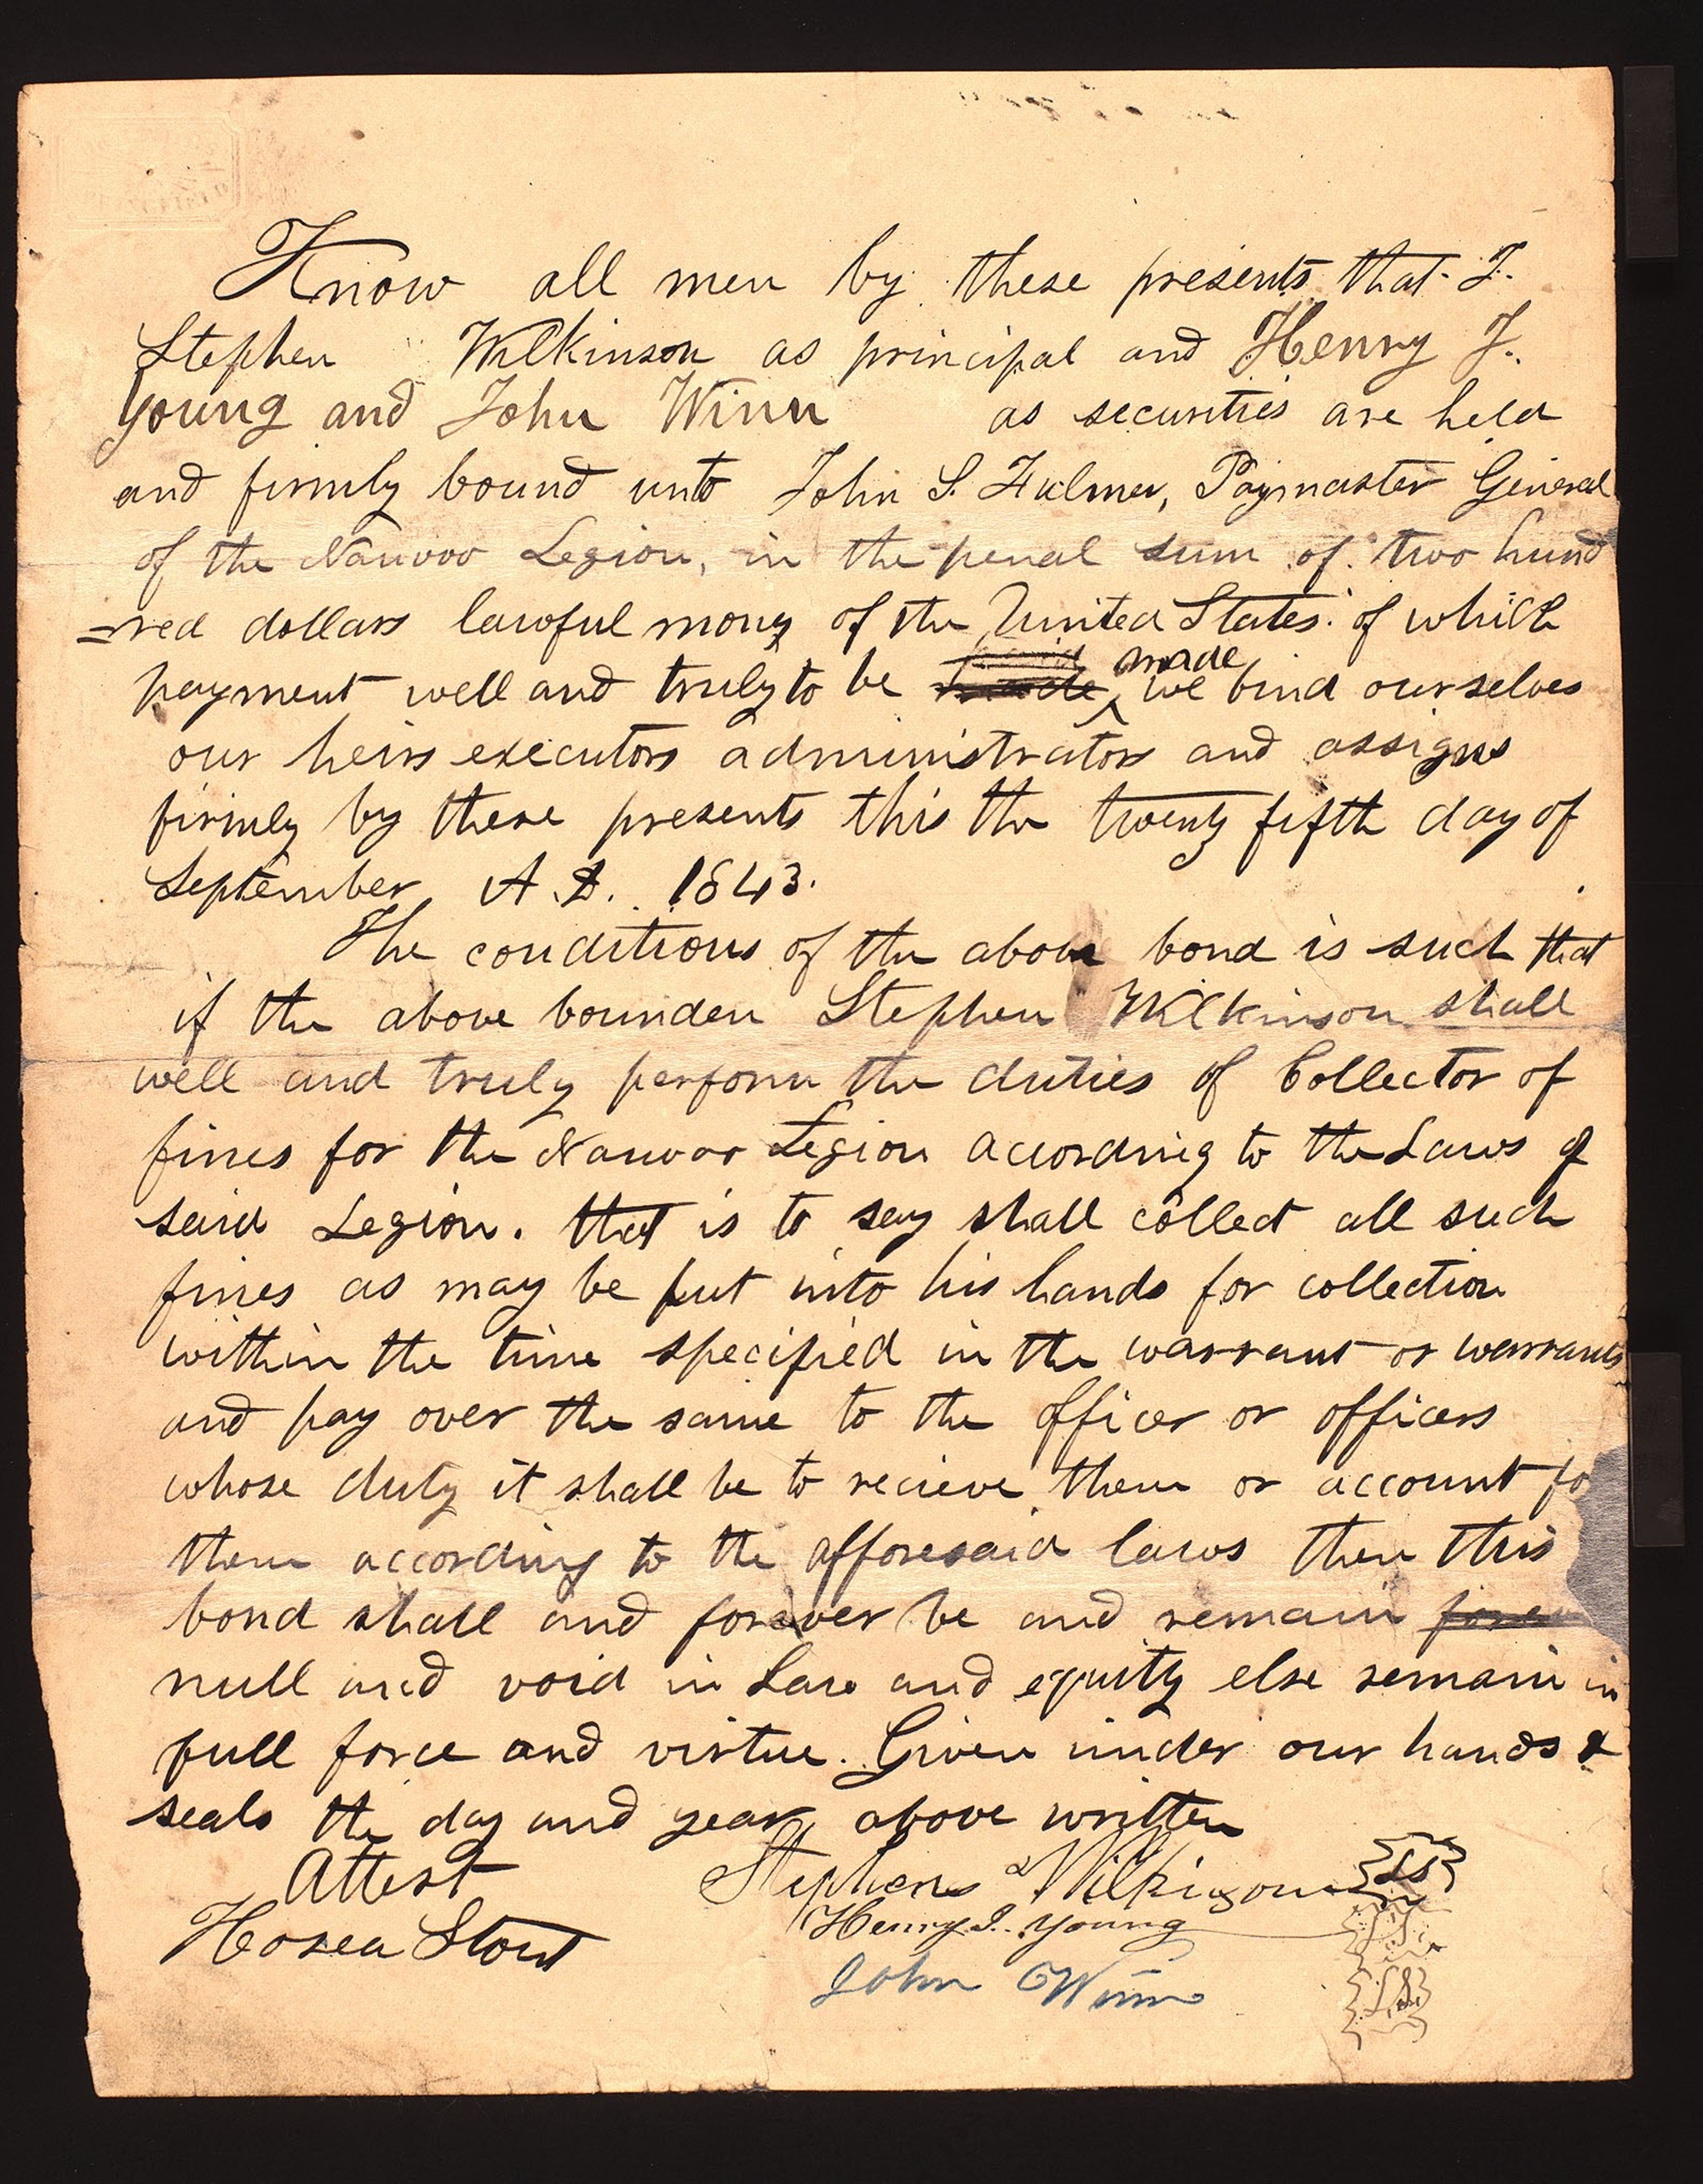 Know all men by these presents that I.
Stephen Wilkinson as principal and Henry J.
Young and John Winn as securities are held
and firmly bound unto John S. Fulmer, Paymaster General
of the Nauvoo Legion, in the penal sum of two hund
=red dollars lawful mony of the United States of which
payment well and truly to be made we bind ourselves
our heirs executors administrators and assigns
firmly by these presents this the twenty fifth day of
September A.D. 1843.
The conditions of the above bond is such that
if the above bounden Stephen Wilkinson shall
well and truly perform the duties of Collector of
fines for the Nauvoo Legion according to the Laws of
said Legion. that is to say shall collect all such
fines as may be put into his hands for collection
within the time specified in the warrant or warrants
and pay over the same to the officer or officers
whose duty it shall be to recieve them or account fo
them according to the afforesaid laws then this
bond shall and forever be and remain
null and void in Law and equity else remain in
full force and virtue. Given under our hands &
seals the day and year above written
Attest Stephens Wilkinson LS
Hosea Stout Henry J. Young LS
John Winn LS